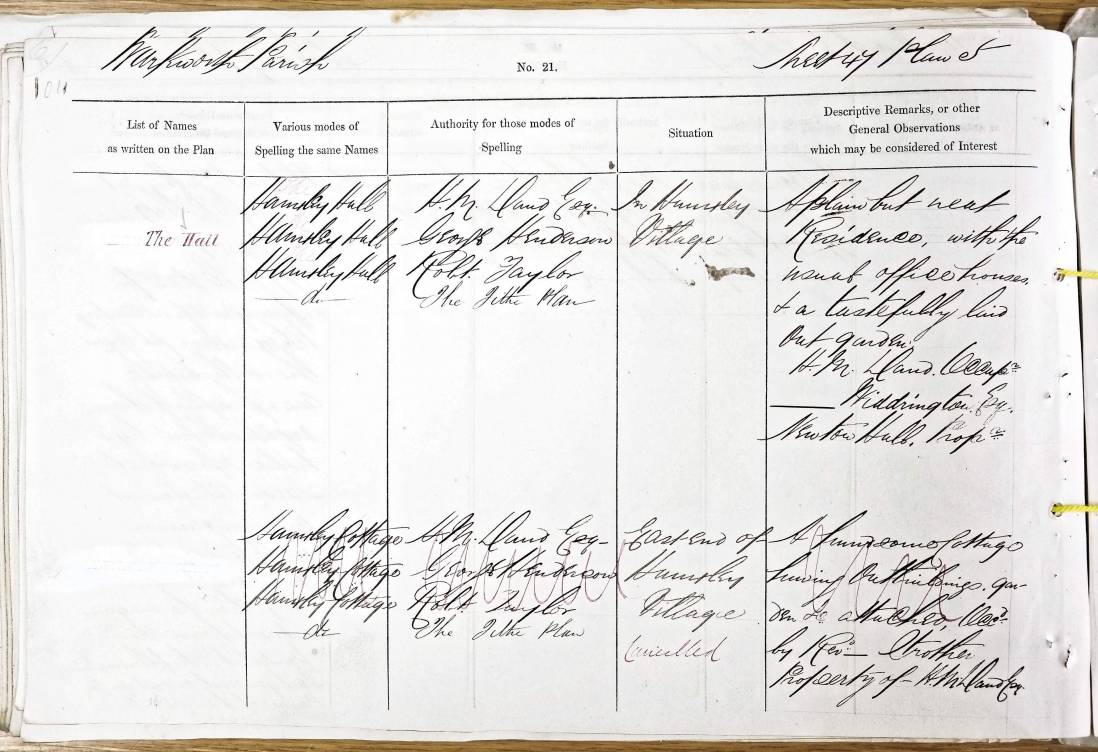 Warkworth Parish
No. 21.
Sheet 47 Plan 5
104
List of Names
as written on the Plan
Various modes of
Spelling the same Names
Authority for those modes of
Spelling
Situation
Descriptive Remarks, or other
General Observations
which may be considered of Interest
The Hall
Hauxley Hall
Hauxley Hall
Hauxley Hall
do
H. M. Dand Esq.
George Henderson
Robt. Taylor
The Tithe Plan
In Hauxley
Village
A plain but neat
Residence, with the
usual office houses,
& a tastefully laid
out garden,
H. M. Dand. Occupr
Widdrington Esq.
Newton Hall. Propr
Hauxley Cottage
Hauxley Cottage
Hauxley Cottage
do
H. M. Dand Esq.
George Henderson
Robt Taylor
The Tithe Plan
East end of
Hauxley
Village
Cancelled
A handsome Cottage
having Outbuildings, gar-
den &c attached, Occd.
by Revd. Strother
Property of H. M. Dand Esq.